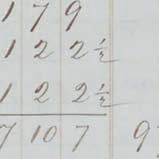 1 7 9
1 2 2 ½
1 2 2 ½
7 10 7 9